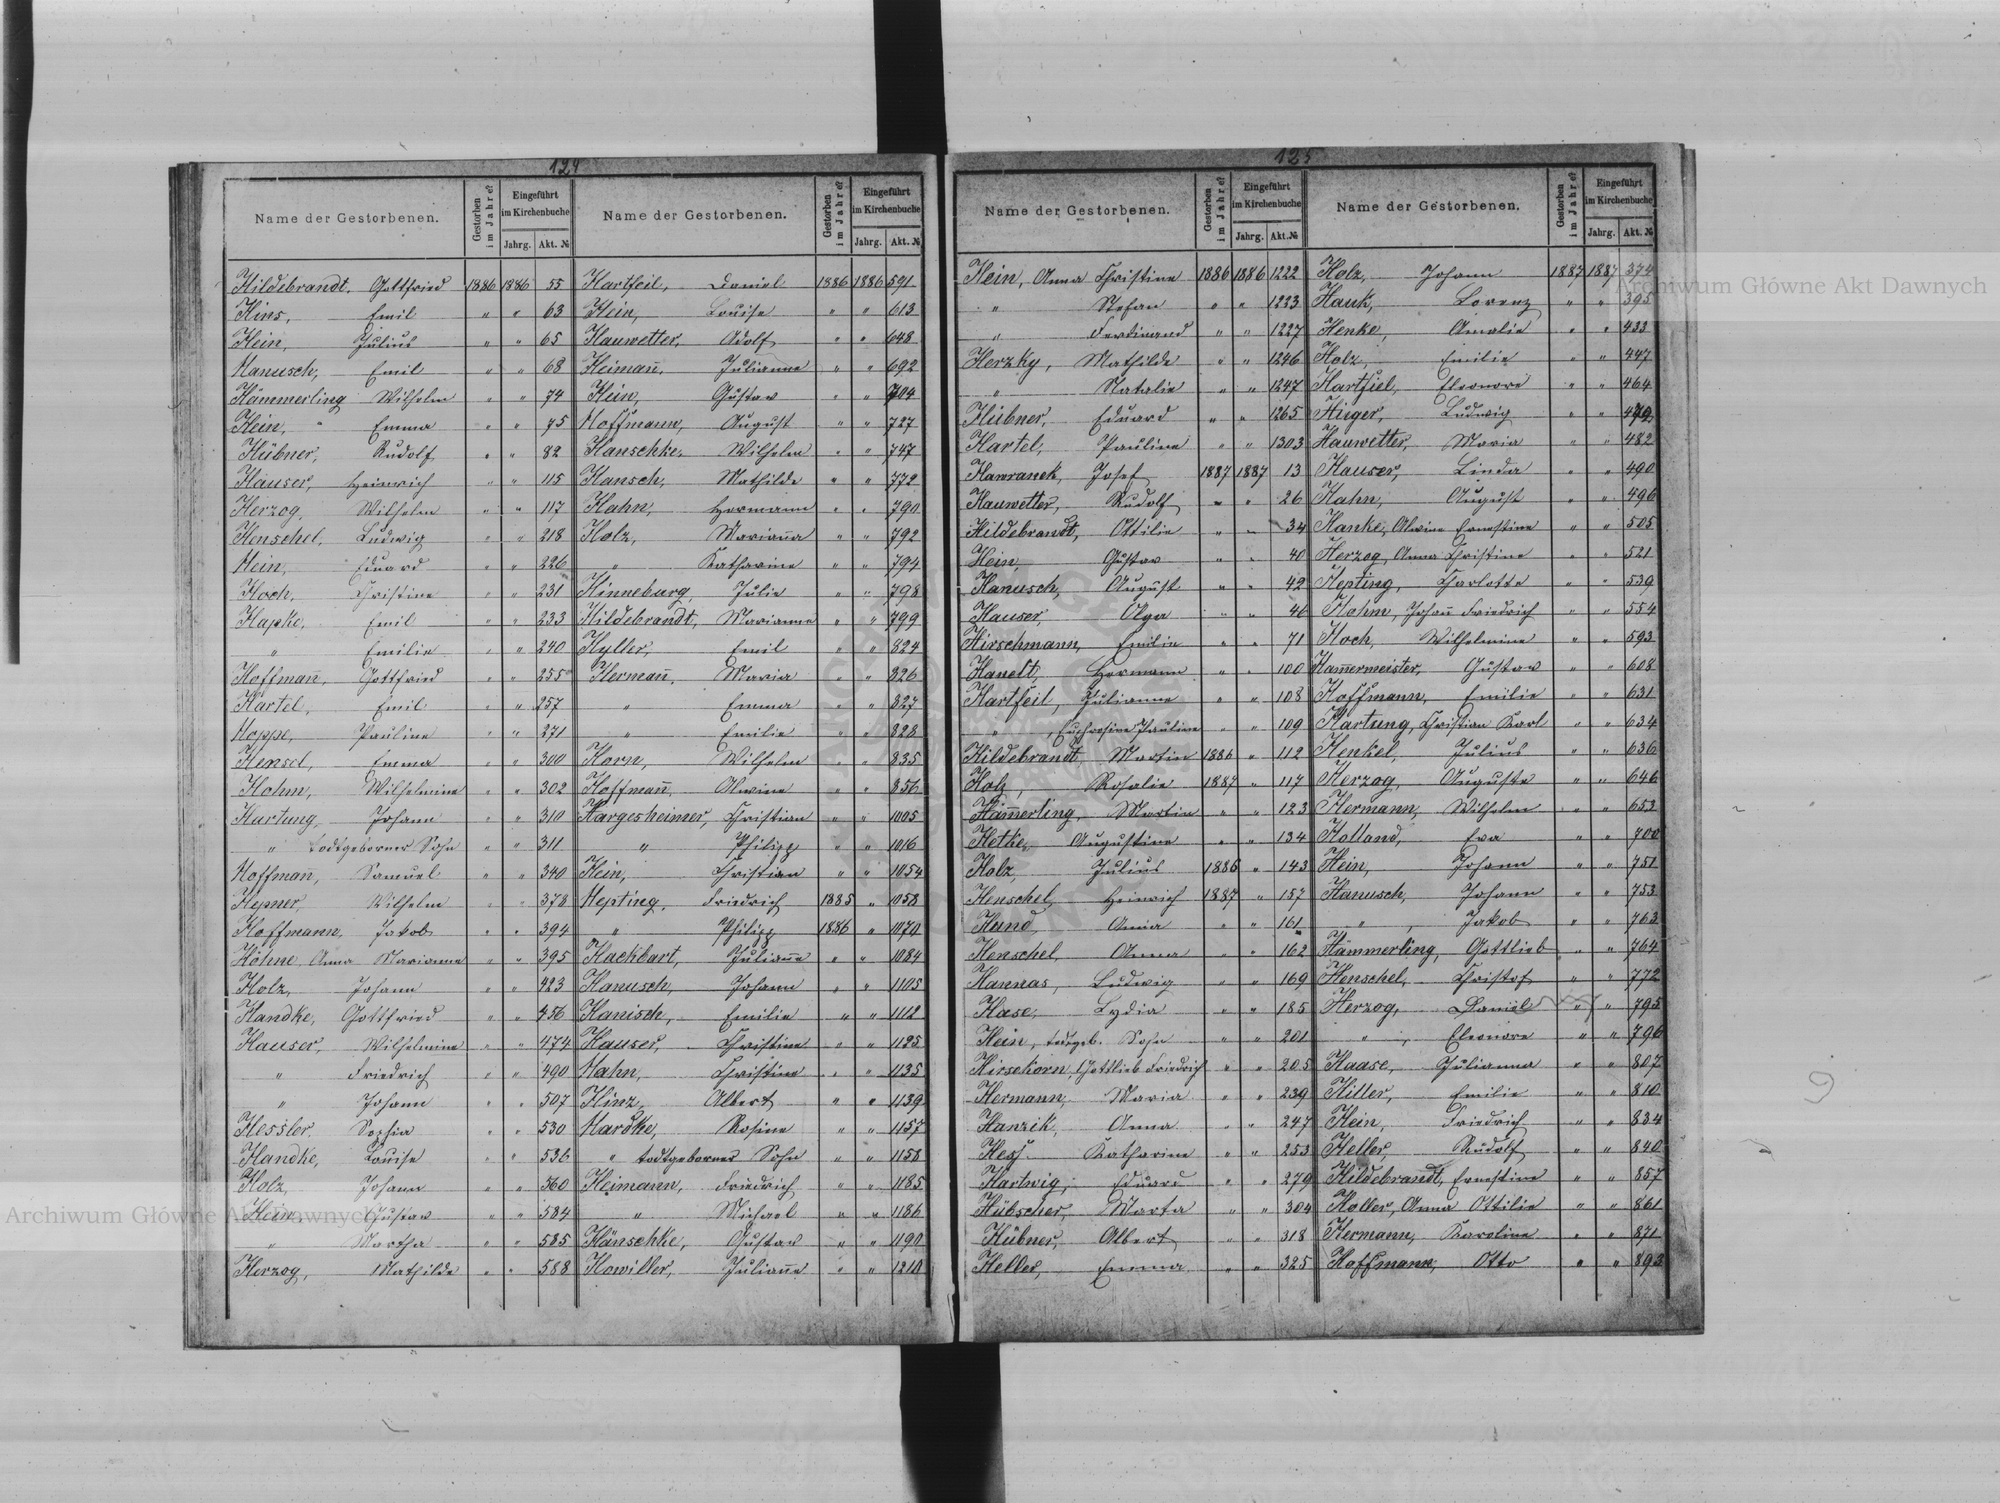 124
Name der Gestorbenen. Gestorben im Jahre? Eingeführt im Kirchenbuche Jahrg. Akt. №
Hildebrandt, Gottfried 1886 1886 55
Hins, Emil " " 63
Hein, Julius " " 65
Hanusch, Emil " " 68
Hämmerling Wilhelm " " 74
Hein, Emma " " 75
Hübner, Rudolf " " 82
Hauser, Heinrich " " 115
Herzog, Wilhelm " " 117
Henschel, Ludwig " " 218
Hein, Eduard " " 226
Hoch, Christine " " 231
Hapke, Emil " " 233
" Emilie " " 240
Hoffman̄, Gottfried " " 255
Hartel, Emil " " 257
Hoppe, Pauline " " 271
Hensel, Emma " " 300
Hohm, Wilhelmine " " 302
Hartung, Johann " " 310
" todtgeborner Sohn " " 311
Hoffman̄, Samuel " " 340
Hepner, Wilhelm " " 378
Hoffmann, Jakob " " 394
Höhne, Anna Marianne " " 395
Holz, Johann " " 423
Handke, Gottfried " " 456
Hauser, Wilhelmine " " 474
" Friedrich " " 490
" Johann " " 507
Hessler, Sophia " " 530
Handke, Louise " " 536
Holz, Johann " " 560
Hein, Gustav " " 584
" Martha " " 585
Herzog, Mathilde " " 588
Name der Gestorbenen. Gestorben im Jahre? Eingeführt im Kirchenbuche Jahrg. Akt. №
Hartfeil, Daniel 1886 1886 591
Hein, Louise " " 613
Hauwetter, Adolf " " 648
Heiman̄, Julianne " " 692
Hein, Gustav " " 704
Hoffmann, August " " 727
Hanschke, Wilhelm " " 747
Hansch, Mathilde " " 772
Hahn, Hermann " " 790
Holz, Marian̄a " " 792
" Katharine " " 794
Hinneburg, Julie " " 798
Hildebrandt, Marianne " " 799
Hyller, Emil " " 824
Herman̄, Maria " " 826
" Emma " " 827
" Emilie " " 828
Horn, Wilhelm " " 835
Hoffman̄, Alwine " " 856
Hargesheimer, Christian " " 1005
" Philipp " " 1016
Hein, Christian " " 1054
Hepting, Friedrich 1885 " 1058
" Philipp 1886 " 1070
Hackbart, Julian̄e " " 1084
Hanusch, Johann " " 1105
Hanisch, Emilie " " 1112
Hauser, Christine " " 1125
Hahn, Christine " " 1135
Hinz, Albert " " 1139
Hardke, Rosine " " 1157
" todtgeborner Sohn " " 1158
Heimann, Friedrich " " 1185
" Michael " " 1186
Hänschke, Gustav " " 1190
Howiller, Julian̄e " " 1210
125
Name der Gestorbenen. Gestorben im Jahre? Eingeführt im Kirchenbuche Jahrg. Akt. №
Hein, Anna Christine 1886 1886 1222
" Stefan " " 1223
" Ferdinand " " 1227
Herzky, Mathilde " " 1246
" Natalie " " 1247
Hübner, Eduard " " 1265
Hartel, Pauline " " 1303
Hawranek, Josef 1887 1887 13
Hauwetter, Rudolf " " 26
Hildebrandt, Ottilie " " 34
Hein, Gustav " " 40
Hanusch, August " " 42
Hauser, Olga " " 46
Hirschmann, Emilie " " 71
Hanelt, Hermann " " 100
Hartfeil, Julianne " " 108
" , Euphrosine Pauline " " 109
Hildebrandt, Martin 1886 " 112
Holz, Rosalie 1887 " 117
Häm̄erling, Martin " " 123
Hetke, Augustine " " 134
Holz, Julius 1886 " 143
Henschel, Heinrich 1887 " 157
Hund, Anna " " 161
Henschel, Anna " " 162
Hannas, Ludwig " " 169
Hase, Lydia " " 185
Hein, todtgeb. Sohn " " 201
Hirsekorn, Gottlieb Friedrich " " 205
Hermann, Maria " " 239
Hanzik, Anna " " 247
Hess, Katharine " " 253
Hartwig, Eduard " " 279
Hübscher, Marta " " 304
Hübner, Albert " " 318
Heller, Emma " " 325
Name der Gestorbenen. Gestorben im Jahre? Eingeführt im Kirchenbuche Jahrg. Akt. №
Holz, Johann 1887 1887 374
Hauk, Lorenz " " 395
Henke, Amalie " " 433
Holz, Emilie " " 447
Hartfiel, Eleonore " " 464
Hieger, Ludwig " "
Hauwetter, Maria " " 482
Hauser, Linda " " 490
Hahn, August " " 496
Hanke, Alwine Ernestine " " 505
Herzog, Anna Christine " " 521
Hepting, Charlotte " " 539
Hahm, Johan̄ Friedrich " " 554
Hoch, Wilhelmine " " 593
Ham̄ermeister, Gustav " " 608
Hoffmann, Emilie " " 631
Hartung, Christian Karl " " 634
Henkel, Julius " " 636
Herzog, Auguste " " 646
Hermann, Wilhelm " " 653
Holland, Eva " " 700
Hein, Johann " " 751
Hanusch, Johann " " 753
" , Jakob " " 763
Hämmerling, Gottlieb " " 764
Henschel, Christof " " 772
Herzog, Daniel " " 795
" , Eleonore " " 796
Haase, Julianna " " 807
Hiller, Emilie " " 810
Hein, Friedrich " " 834
Heller, Rudolf " " 840
Hildebrandt, Ernestine " " 857
Holler, Anna Ottilie " " 861
Hermann, Karoline " " 871
Hoffmann, Otto " " 893
Archiwum Główne Akt Dawnych
Archiwum Główne Akt Dawnych